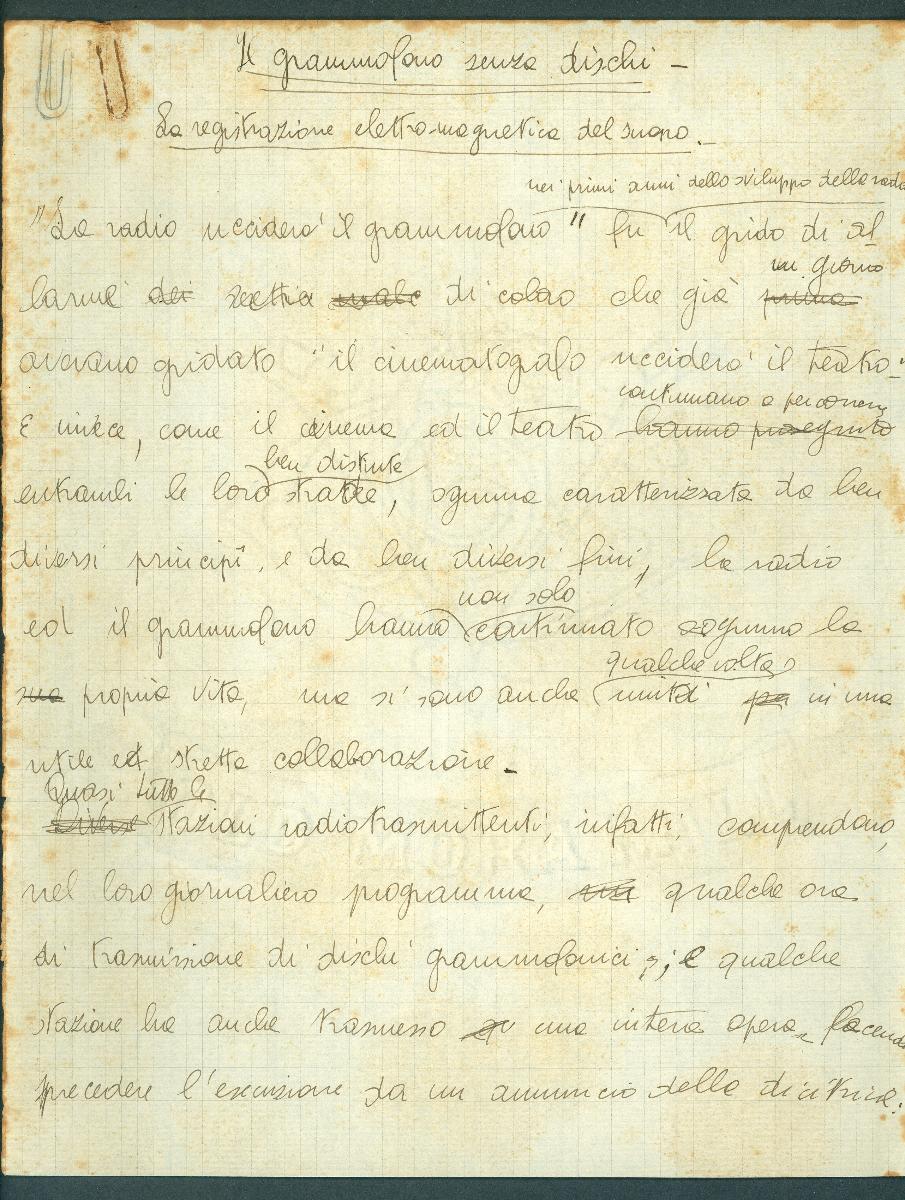 Il grammofono senza dischi -
La registrazione elettro-magnetica del suono.-
nei primi anni dello sviluppo della radio
"La radio ucciderà il grammofono" fu il grido di al
un giorno
larme dei di coloro che già prima
avevano gridato "il cinematografo ucciderà il teatro."
continuano a percorrere
E invece, come il cinema ed il teatro hanno proseguito
ben distinte
entrambi le loro strade, ognuna caratterizzata da ben
diversi principî, e da ben diversi fini, la radio
non solo
ed il grammofono hanno continuato ognuno la
qualche volta
sua propria vita, ma si sono anche uniti in una
utile e stretta collaborazione.-
Quasi tutte le
diverse stazioni radiotrasmittenti, infatti, comprendono,
nel loro giornaliero programma, qualche ora
di trasmissione di dischi grammofonici; e qualche
stazione ha anche trasmesso una intera opera facendo
precedere l'escuzione da un annuncio della dicitrice.